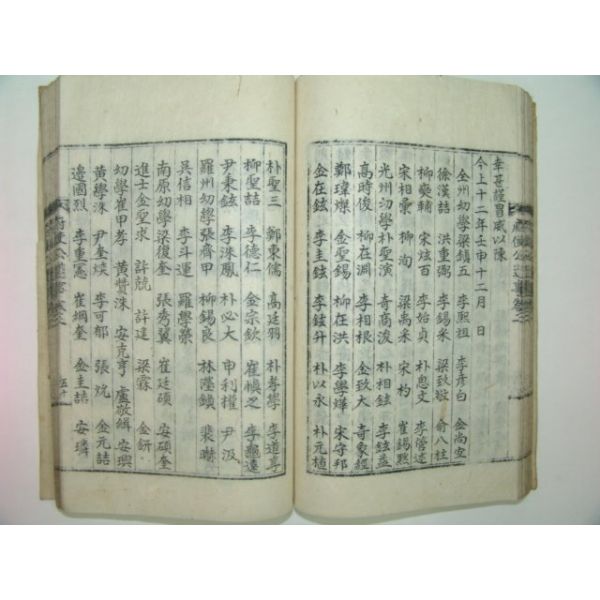 幸甚謹冒威以陳
今上十二年壬申十二月 日
全州幼學梁鎭五 李熙祖 李彦白 金尚宜
徐漢喆 洪重弼 李錫采 梁致敏 俞八柱
柳奭輔 宋炫百 李始貞 朴思文 李儐述
宋相彙 柳洵 梁禹采 宋杓 崔錫熙
光州幼學朴聖演 奇商浚 朴相鉉 李鉉益
高時俊 柳在淵 李相根 金致大 奇象經
鄭瑋燦 金聖錫 柳在洪 李學燁 宋守邦
金在鉉 李圭鉉 李鉉升 朴以永 朴元植
朴聖三 鄭東儒 高廷羽 朴孝學 李進亨
柳聖喆 李德仁 金宗欽 崔 之 李 遠
尹秉鉉 李洙鳳 朴必大 申利權 尹汲
羅州幼學張齊甲 柳錫良 林瀅鎮 裴 
吳信相 李斗運 羅學榮
南原幼學梁復奎 張秀翼 崔廷碩 安碩奎
進士金聖求 許競 許達 梁霖 金鈃
幼學崔甲孝 黃贊洙 安克亨 盧敬緝 安璵
黃學洙 尹奎煐 李可郁 張烷 金元喆
邊國烈 李重憲 崔烱奎 金圭喆 安璘